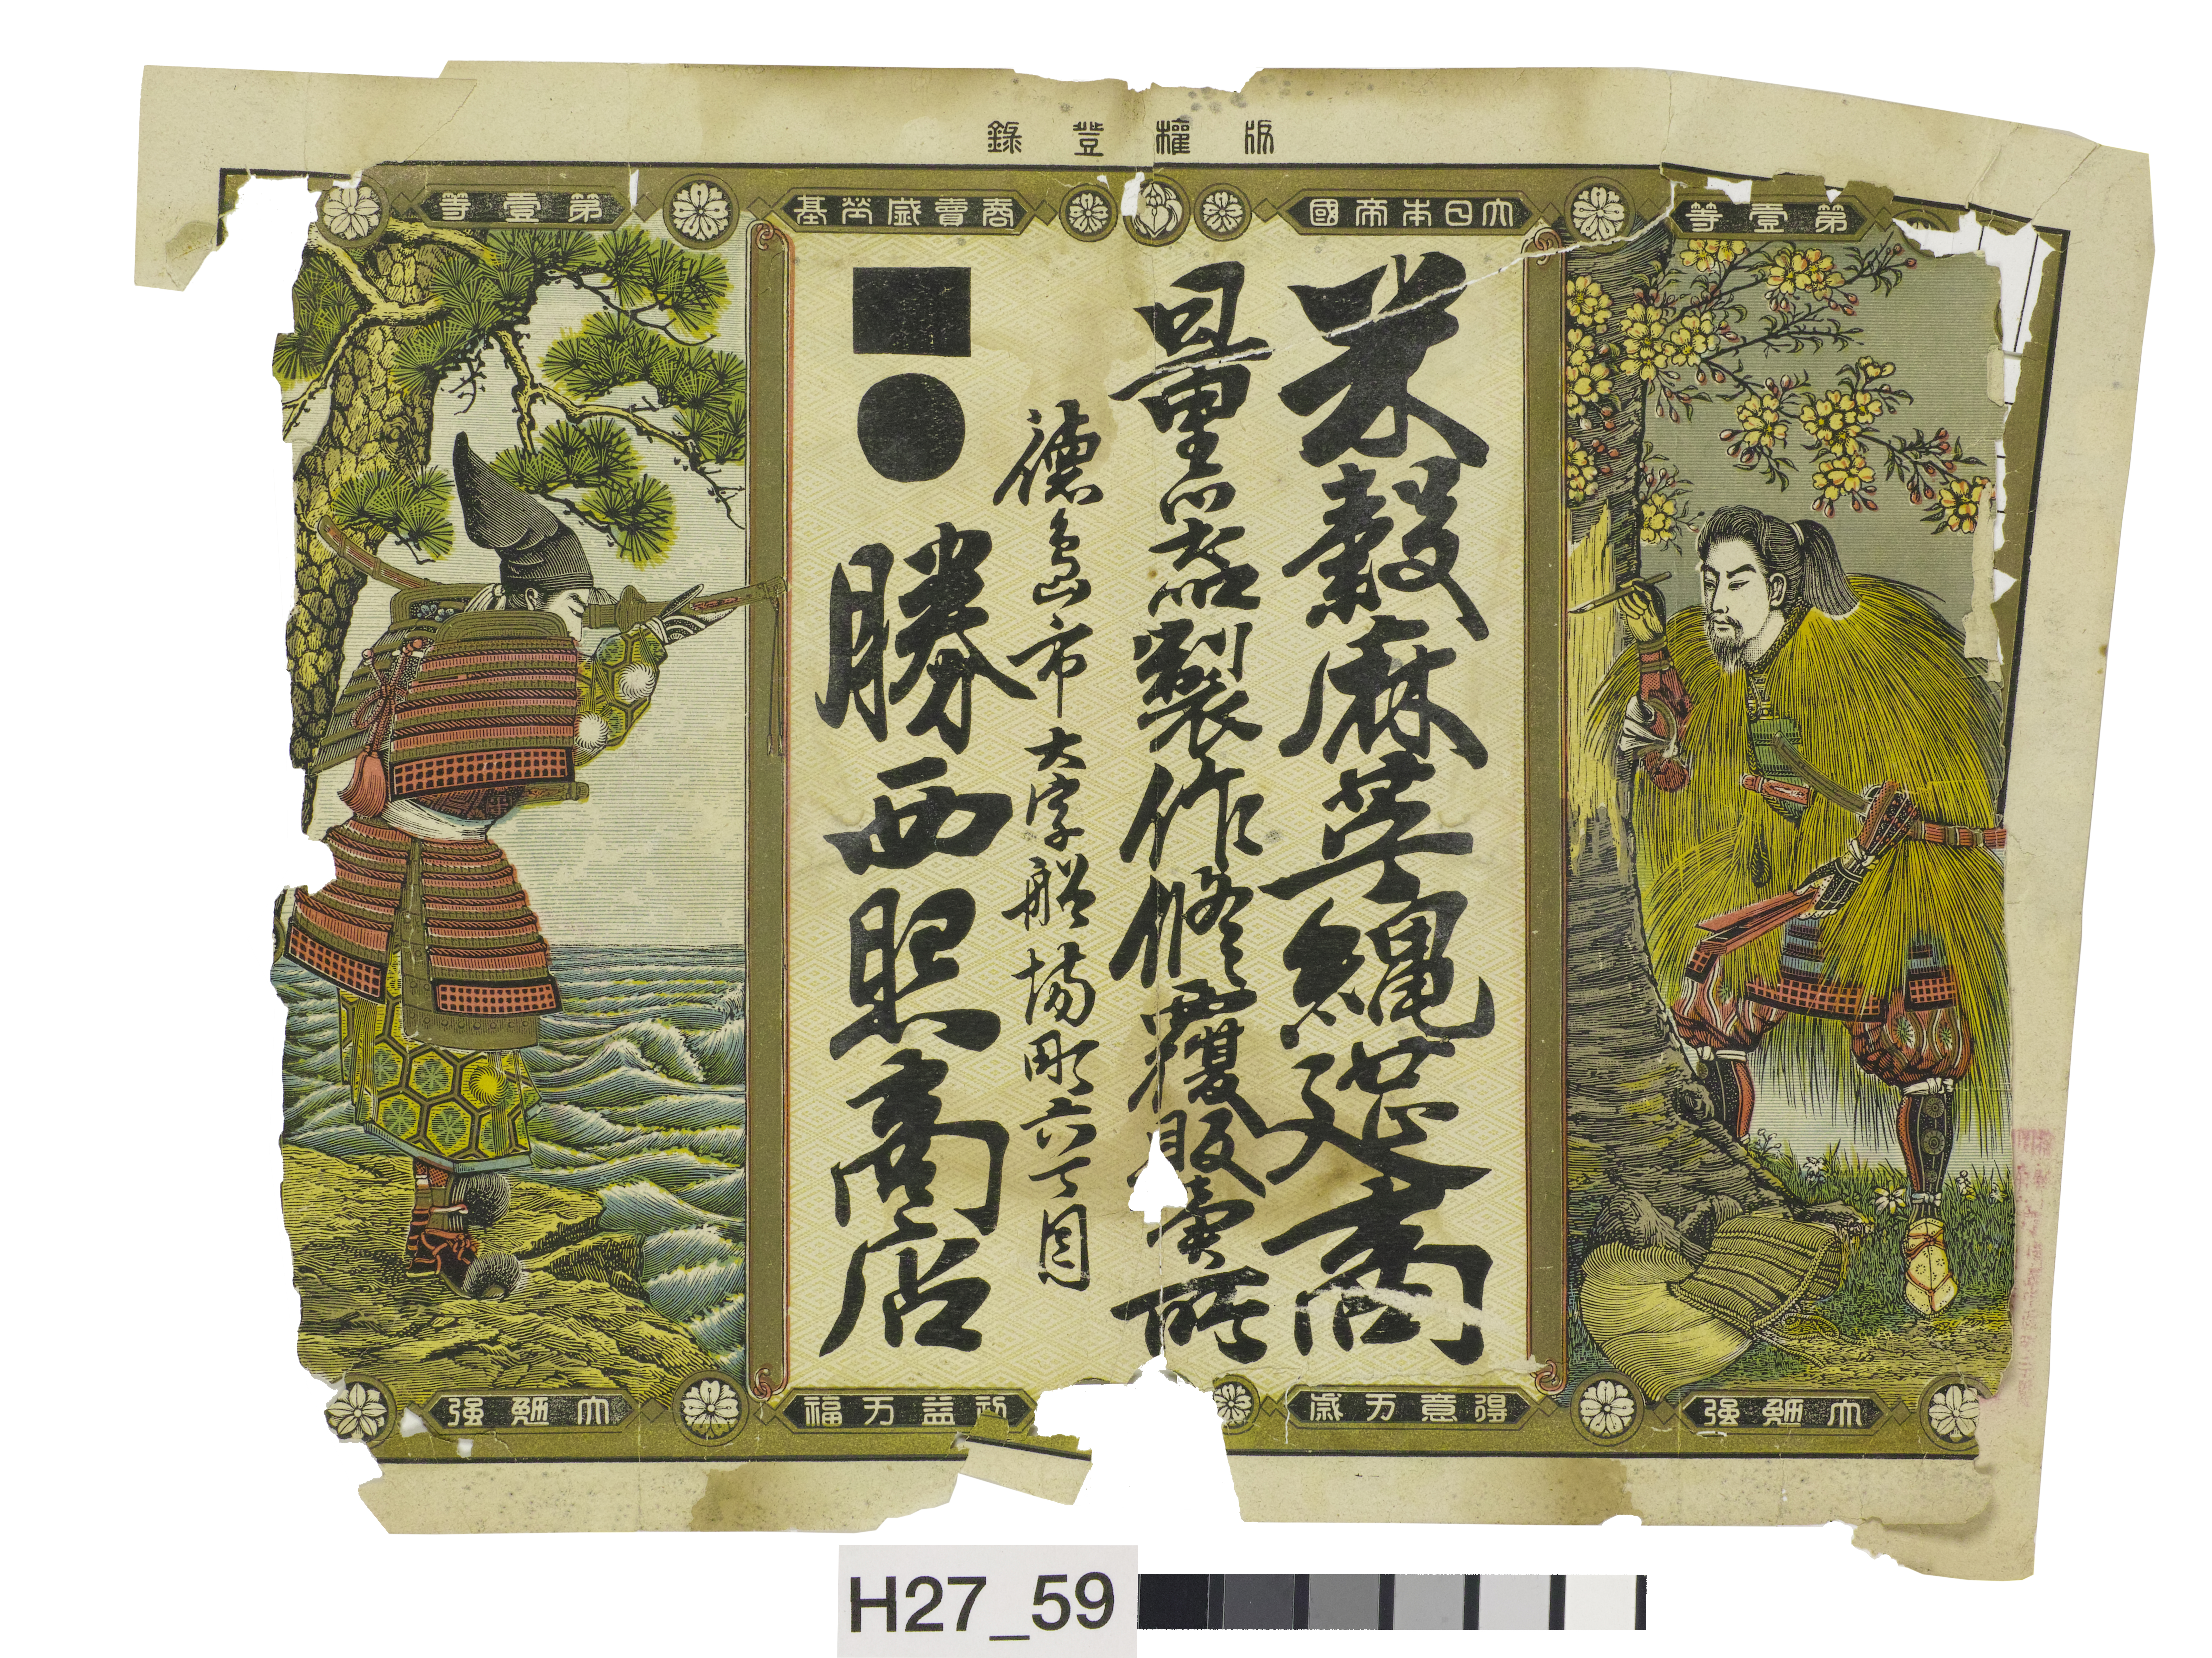 版權登錄
第壹等
大日本帝國
商賣盛栄基
第壹等
米穀麻苧縄莚商
量器製作修覆販賣所
徳島市大字船場町六丁目
勝西 商店
大勉强
得意万歳
利益万福
大勉强
H27_59